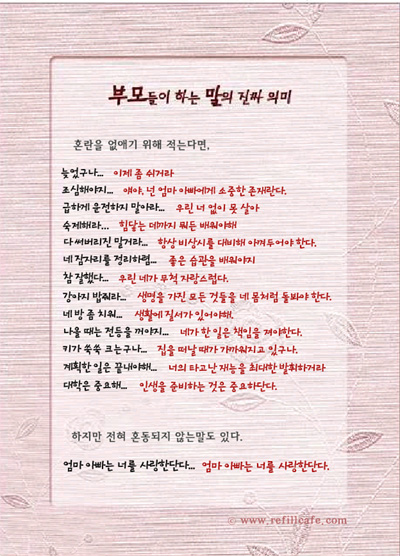 부모들이 하는 말의 진짜 의미
혼란을 없애기 위해 적는다면,
늦었구나... 이제 좀 쉬거라
조심해야지... 얘야, 넌 엄마 아빠에게 소중한 존재란다.
급하게 운전하지 말아라... 우린 너 없이 못 살아
숙제해라... 힘닿는 데까지 뭐든 배워야해
다 써버리진 말거라... 항상 비상시를 대비해 아껴두어야 한다.
네 잠자리를 정리하렴... 좋은 습관을 배워야지
참 잘했다... 우린 네가 무척 자랑스럽다.
강아지 밥줘라... 생명을 가진 모든 것들을 네 몸처럼 돌봐야 한다.
네 방 좀 치워... 생활에 질서가 있어야해.
나올 때는 전등을 꺼야지... 네가 한 일은 책임을 져야한다.
키가 쑥쑥 크는구나... 집을 떠날 때가 가까워지고 있구나.
계획한 일은 끝내야해... 너의 타고난 재능을 최대한 발휘하거라
대학은 중요해... 인생을 준비하는 것은 중요하단다.
하지만 전혀 혼동되지 않는말도 있다.
엄마 아빠는 너를 사랑한단다... 엄마 아빠는 너를 사랑한단다.
© www.refillcafe.com